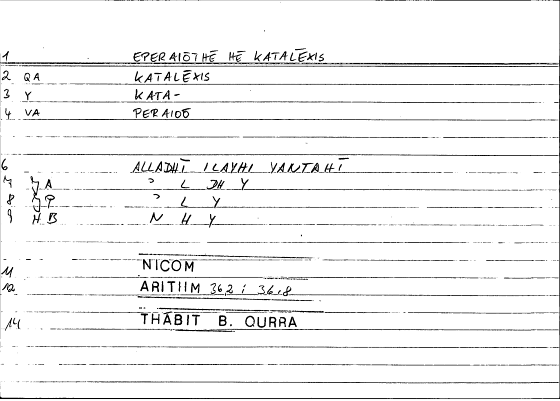 1 EPERAIŌTHĒ HĒ KATALĒXIS
2 QA KATALĒXIS
3 Y KATA-
4 VA PERAIOŌ
6 ALLADHĪ ILAYHI YANTAHĪ
7 A ʾ L DH Y
8 ʾ L Y
9 HB N H Y
NICOM
ARITIIM 362 : 36.8
14 THĀBIT B. QURRA